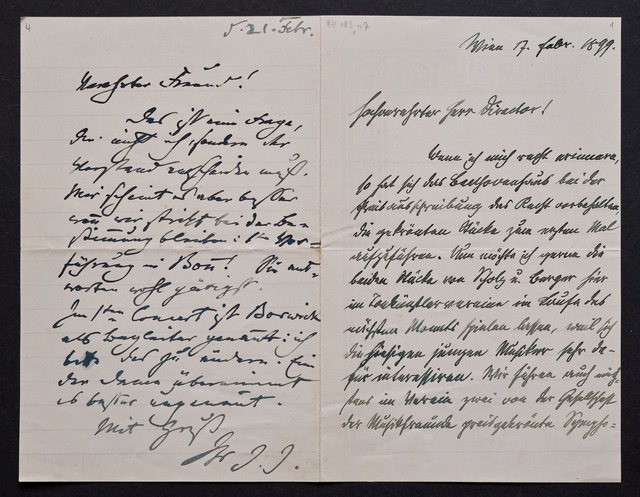 4
5. 21. Febr.
Verehrter Freund!
Das ist eine Frage,
die nicht ich, sondern der
Vorstand entscheiden muß.
Mir scheint es aber besser
wenn wir strikt bei der Be-
stimmung bleiben: 1te Vor-
führung in Bonn! Sie ant-
worten wohl gütigst.
Im 1ten Concert ist Borwick
als Begleiter genannt: ich
bitte das zu ändern. Ein
der Damen übernimmt
es besser ungenannt.
Mit Gruß
Ihr J. J.
1
Wien 17. Febr. 1899.
Hochverehrter Herr Director!
Wenn ich mich recht erinnere,
so hat sich das Beethovenhaus bei der
Preisausschreibung das Recht vorbehalten,
die gekrönten Stücke zum ersten Mal
aufzuführen. Nun möchte ich gerne die
beiden Stücke von Scholz u. Berger hier
im Tonkünstlerverein im Laufe des
nächsten Monats spielen lassen, weil sich
die hiesigen jungen Musiker sehr da-
für interessiren. Wir führen auch näch-
stens im Verein zwei von der Gesellschaft
der Musikfreunde preisgekrönte Sympho-